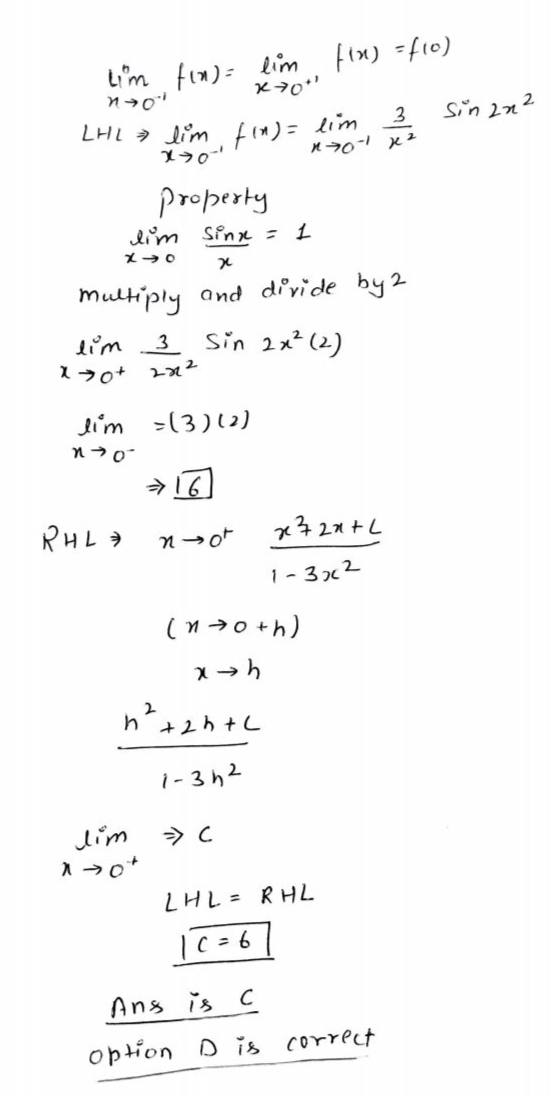 lim x→0⁻ f(x) = lim x→0⁺ f(x) = f(0)
LHL ⇒ lim x→0⁻ f(x) = lim x→0⁻ 3/x² Sin 2x²
property
lim x→0 Sinx/x = 1
multiply and divide by 2
lim x→0+ 3/2x² Sin 2x² (2)
lim x→0⁻ =(3)(2)
⇒ 6
RHL ⇒ x→0⁺ x²+2x+C/1-3x²
(x→0+h)
x→h
h²+2h+C/1-3h²
lim x→0⁺ ⇒ C
LHL = RHL
C=6
Ans is C
option D is correct